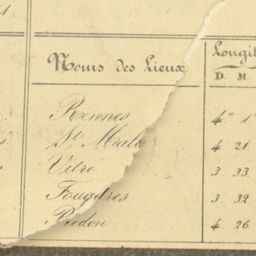 Noms des Lieux Longit
D. M.
Rennes 4° 1
St Malo 4 21
Vitré 3 33
Fougères 3 32
Redon 4 26